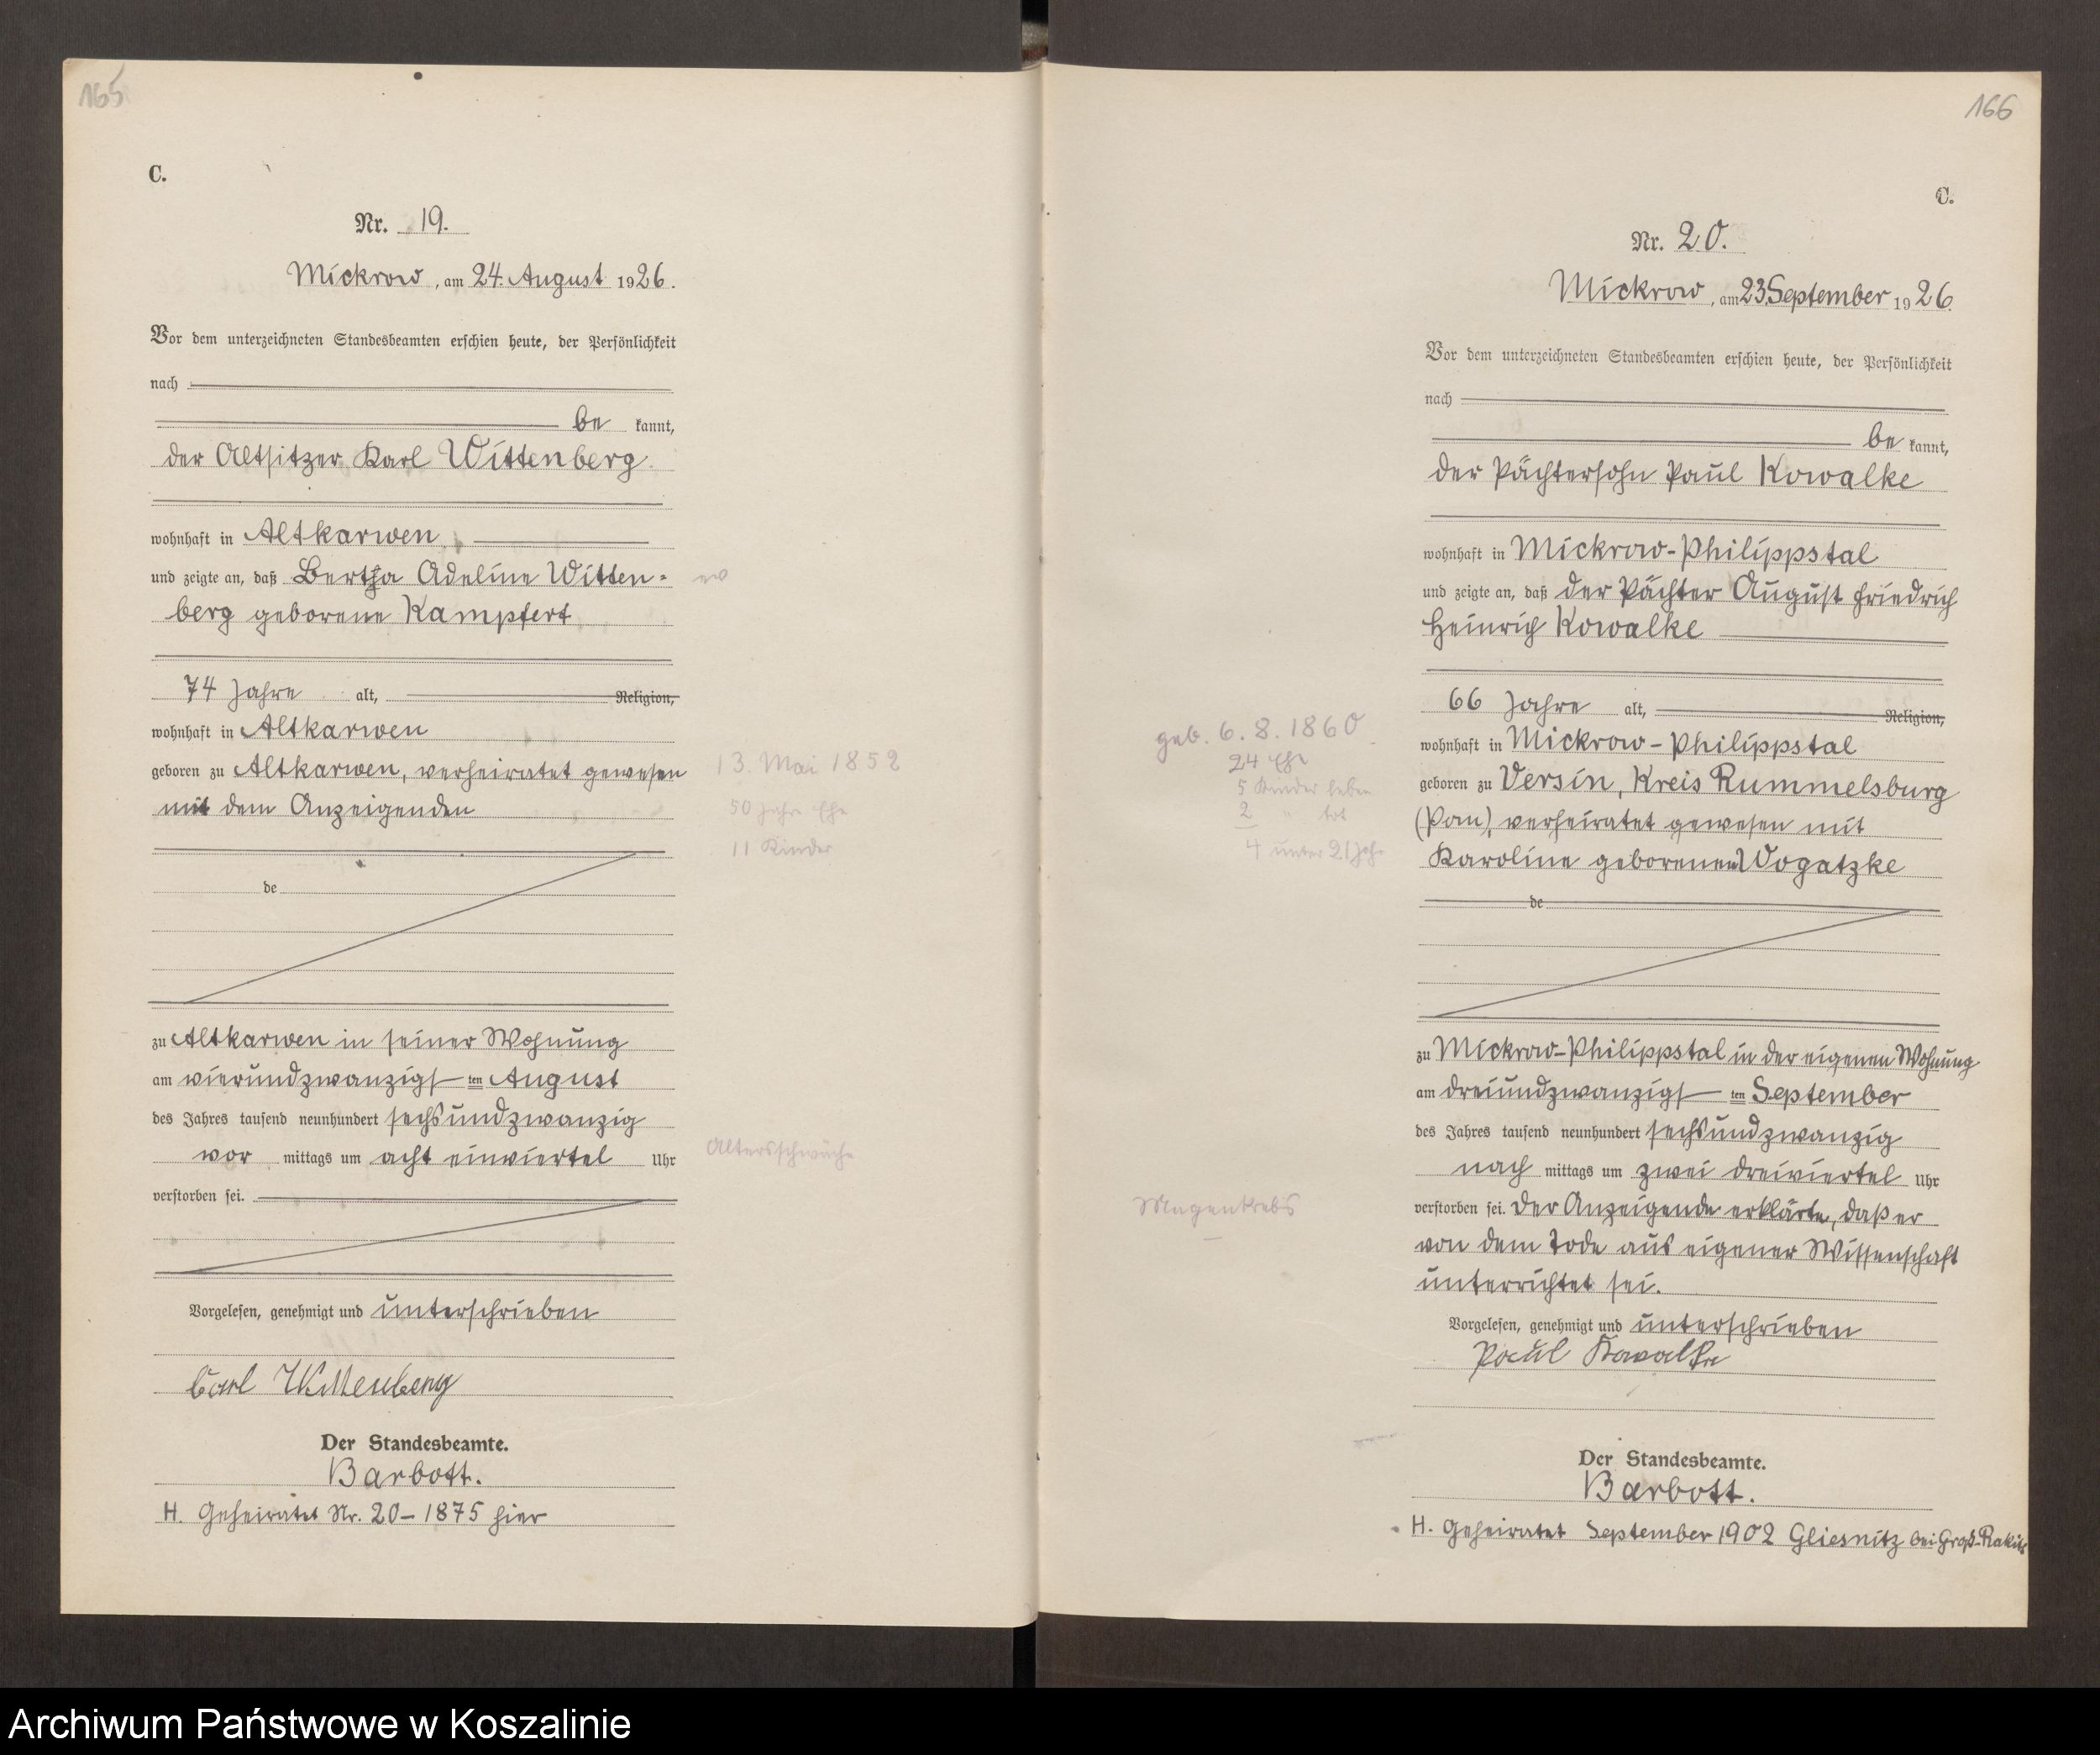 165
C.
Nr. 19.
Mickrow, am 24. August 1926.
Vor dem unterzeichneten Standesbeamten erschien heute, der Persönlichkeit
nach
be kannt,
der Altsitzer Karl Wittenberg
wohnhaft in Altkarwen
und zeigte an, daß Bertha Adeline Witten-
ev
berg geborene Kampfert
74 Jahre alt, Religion,
wohnhaft in Altkarwen
geboren zu Altkarwen, verheiratet gewesen
13. Mai 1852
mit dem Anzeigenden
50 Jahre Ehe
11 Kinder
de
zu Altkarwen in seiner Wohnung
am vierundzwanzigsten August
des Jahres tausend neunhundert sechsundzwanzig
vor mittags um acht einviertel Uhr
Altersschwäche
verstorben sei.
Vorgelesen, genehmigt und unterschrieben
Carl Wittenberg
Der Standesbeamte.
Barbott.
H. Geheiratet Nr. 20-1875 hier
166
C.
Nr. 20.
Mickrow, am 23. September 1926.
Vor dem unterzeichneten Standesbeamten erschien heute, der Persönlichkeit
nach
be kannt,
der Pächtersohn Paul Kowalke
wohnhaft in Mickrow-Philippstal
und zeigte an, daß der Pächter August Friedrich
Heinrich Kowalke
66 Jahre alt, Religion,
geb. 6. 8. 1860
wohnhaft in Mickrow-Philippstal
24 Ehe
geboren zu Versin, Kreis Rummelsburg
5 Kinder leben
(Pom), verheiratet gewesen mit
2 " tot
4 unter 21 Jahr
Karoline geborenen Wogatzke
de
zu Mickrow-Philippstal in der eigenen Wohnung
am dreiundzwanzigsten September
des Jahres tausend neunhundert sechsundzwanzig
nach mittags um zwei dreiviertel Uhr
Magenkrebs
verstorben sei. Der Anzeigende erklärte, daß er
von dem Tode aus eigener Wissenschaft
unterrichtet sei.
Vorgelesen, genehmigt und unterschrieben
Paul Kowalke
Der Standesbeamte.
Barbott.
H. Geheiratet September 1902 Gliesnitz bei Groß-Rakitt
Archiwum Państwowe w Koszalinie